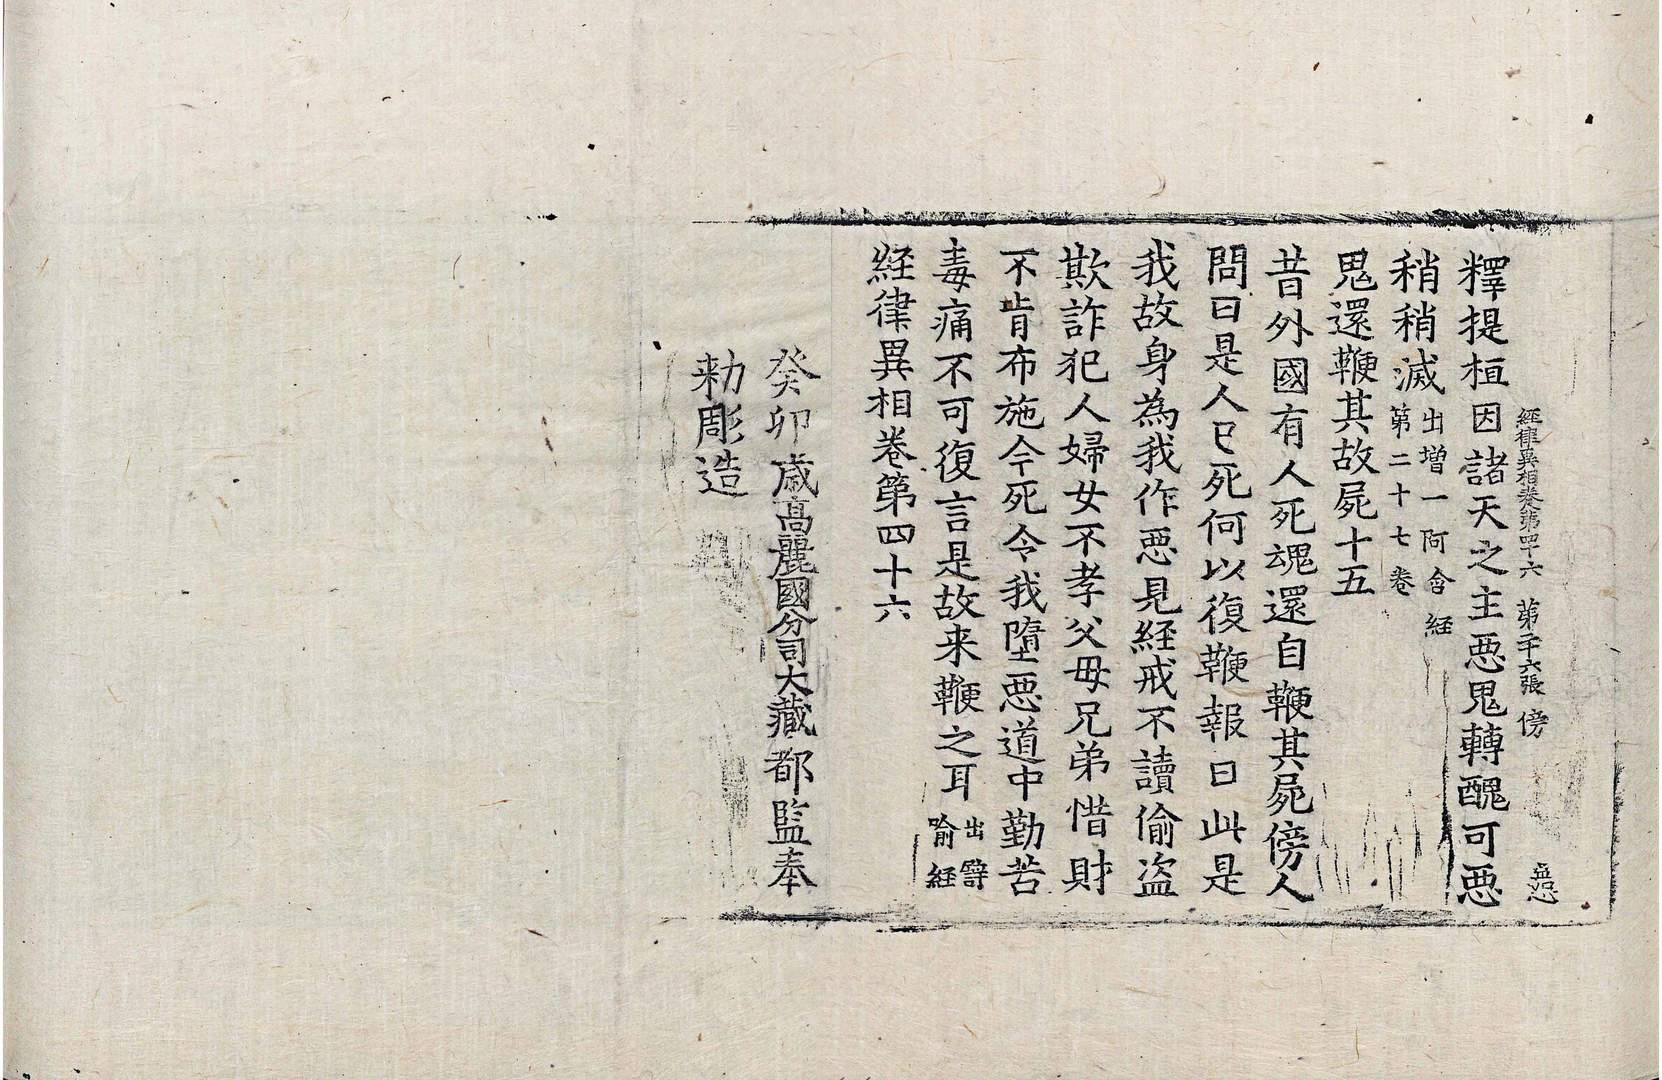 經律異相卷第四十六 第二十六張 傍
釋提桓因諸天之主惡鬼轉醜可惡
稍稍滅出增一阿含經第二十七卷
鬼還鞭其故屍十五
昔外國有人死魂還自鞭其屍傍人
問曰是人已死何以復鞭報曰此是
我故身為我作惡見經戒不讀偷盜
欺詐犯人婦女不孝父母兄弟惜財
不肯布施今死令我墮惡道中勤苦
毒痛不可復言是故来鞭之耳出譬喻經
經律異相卷第四十六
癸卯歳高麗國分司大藏都監奉
勑彫造